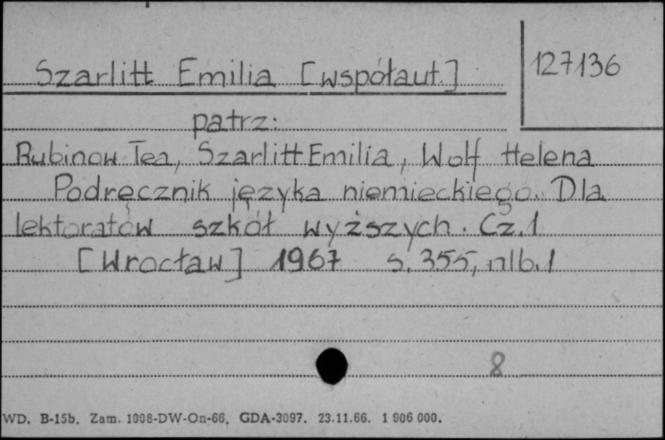 Szarlitt Emilia [współaut.]
127136
patrz:
Rubinow Tea, Szarlitt Emilia, Wolf Helena
Podręcznik języka niemieckiego. Dla
lektoratów szkół wyższych. Cz.1
[Wrocław] 1967 s. 355, nlb.1
8
WD. B-15b. Zam. 1098-DW-On-66. GDA-3097. 23.11.66. 1 906 000.